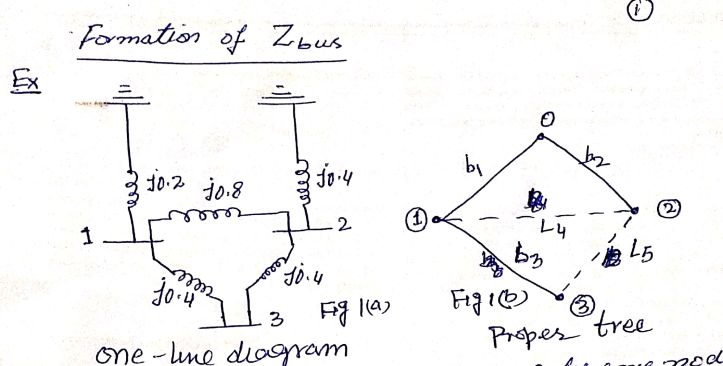 ①
Formation of Zbus
Ex
j0.2
j0.8
j0.4
1
2
j0.4
j0.4
3
Fig 1(a)
one-line diagram
0
b1
b2
①
②
L4
b3
L5
③
Fig 1(b)
Proper tree